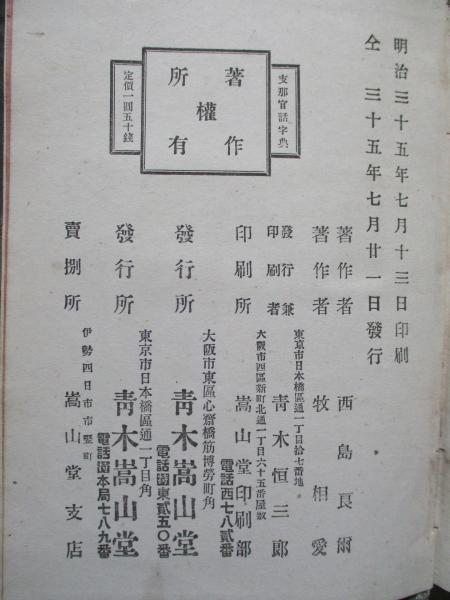 明治三十五年七月十三日印刷
仝 三十五年七月廿一日發行
支那官話字典
著作權所有
定價一圓五十錢
著作者 西島良爾
著作者 牧相愛
東京市日本橋區通一丁目拾七番地
發行兼印刷者 青木恒三郎
大阪市西區新町北通一丁目六十五番屋敷
印刷所 嵩山堂印刷部
電話西七八貳番
大阪市東區心齋橋筋博勞町角
發行所 青木嵩山堂
電話園東貳五〇番
東京市日本橋區通一丁目角
發行所 青木嵩山堂
電話園本局七八九番
伊勢四日市市竪町
賣捌所 嵩山堂支店